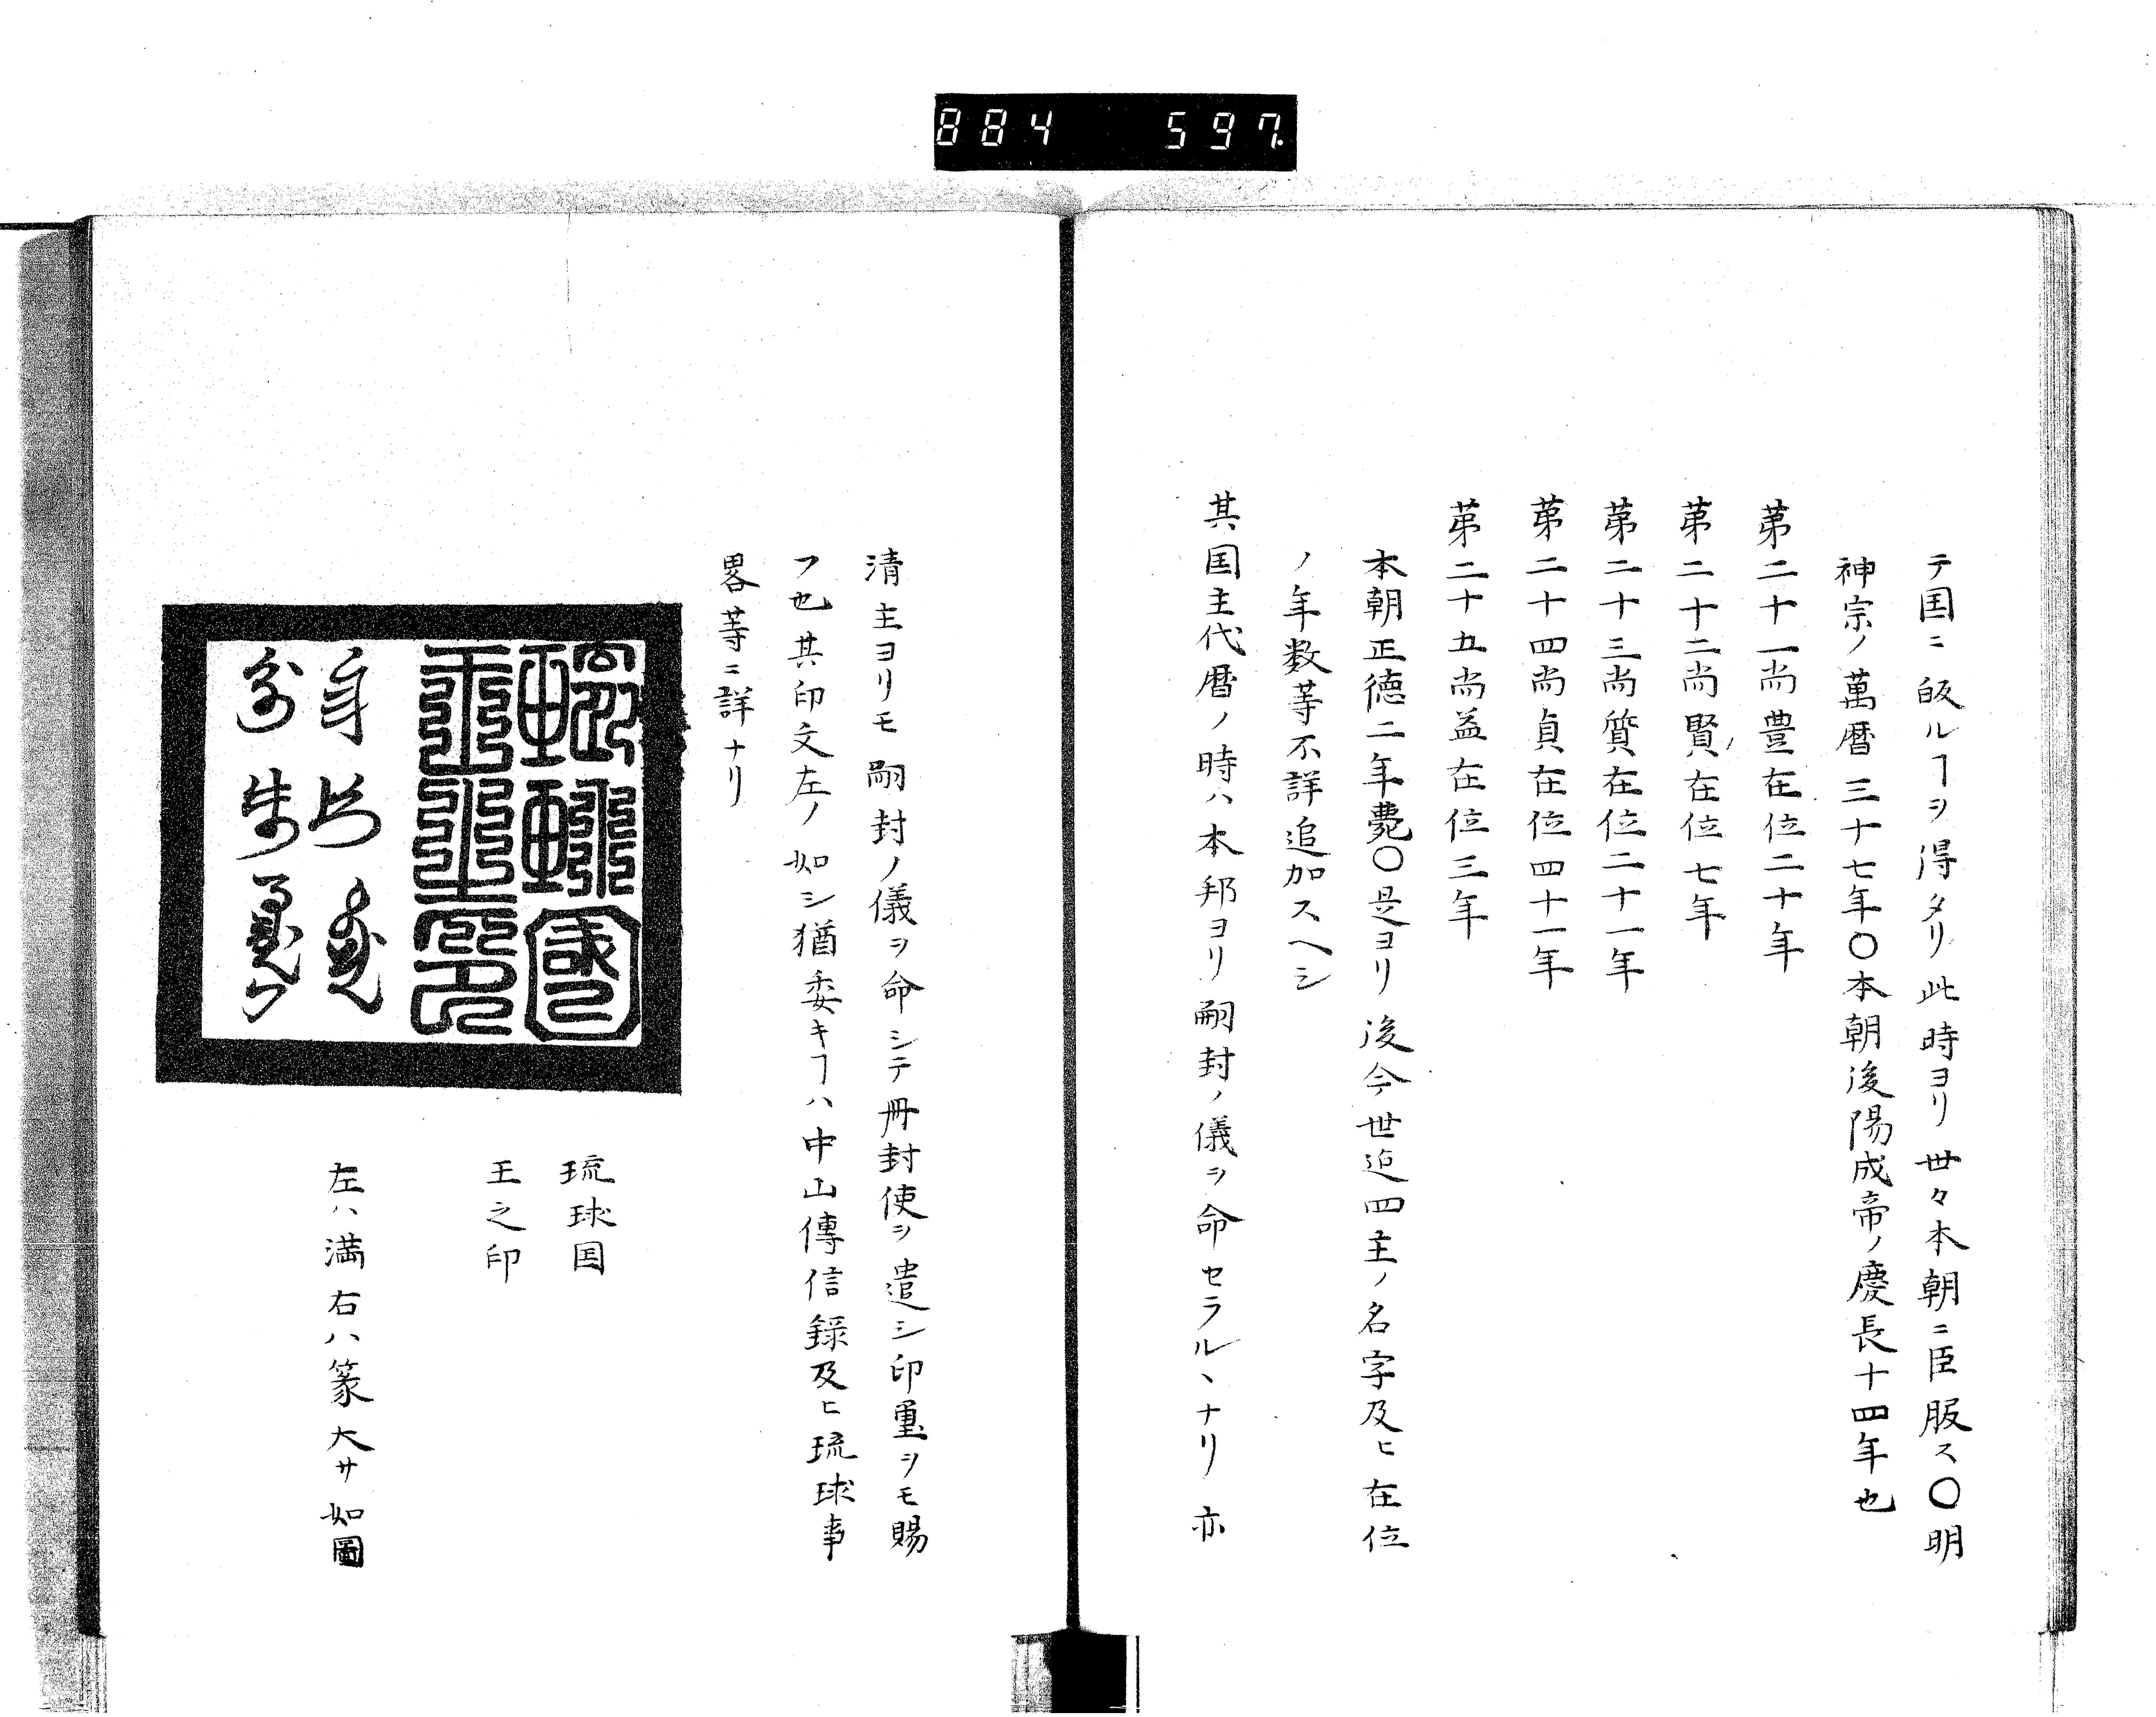 884 597.
テ国ニ皈ルヿヲ得タリ此時ヨリ世々本朝ニ臣服ス〇明
神宗ノ萬暦三十七年〇本朝後陽成帝ノ慶長十四年也
第二十一尚豊在位二十年
第二十二尚賢在位七年
第二十三尚質在位二十一年
第二十四尚貞在位四十一年
第二十五尚益在位三年
本朝正徳二年薨〇是ヨリ後今世迠四主ノ名字及ヒ在位
ノ年数等不詳追加スヘシ
其国主代暦ノ時ハ本邦ヨリ嗣封ノ儀ヲ命セラルヽナリ亦
清主ヨリモ嗣封ノ儀ヲ命シテ冊封使ヲ遣シ印璽ヲモ賜
フ也其印文左ノ如シ猶委キヿハ中山傳信録及ヒ琉球事
畧等ニ詳ナリ
琉球國
王之印
琉球国
王之印
左ハ満右ハ篆大サ如圖